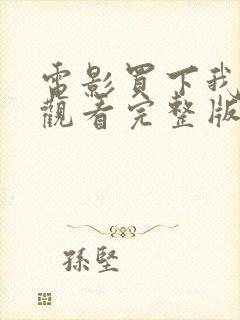 電影買下我
觀看完整版
孫堅